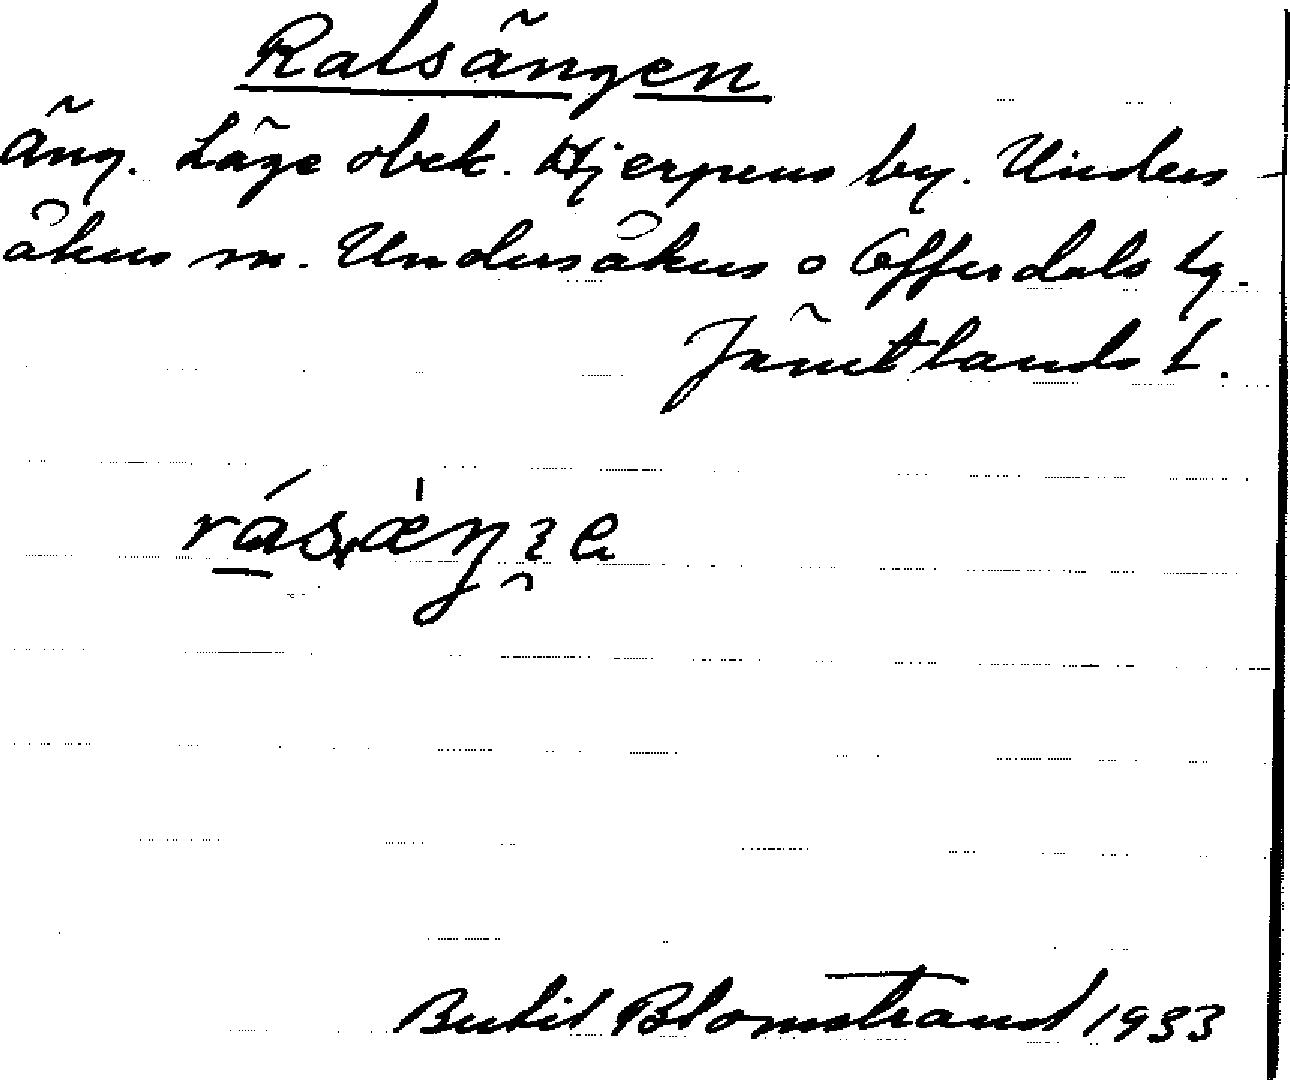 Ralsängen
Äng. Läge obek. Hjerpens by. Unders-
åkers sn. Undersåkers o Offerdals tg.
Jämtlands l.
Bertil Blomstrand 1933